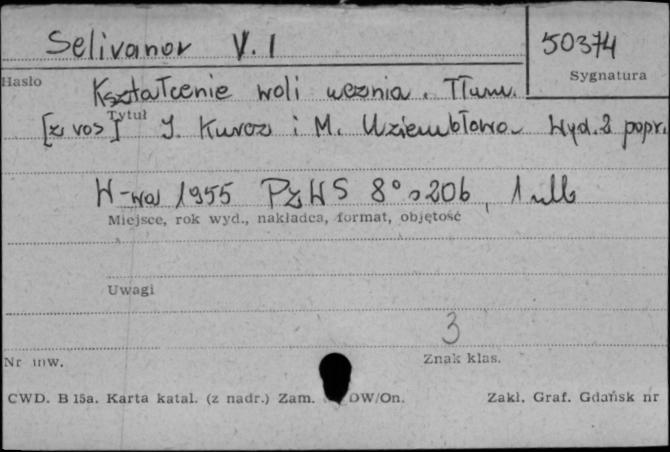 Selivanov V. I
50374
Hasło
Sygnatura
Kształcenie woli ucznia. Tłum.
Tytuł
[z ros] J. Kurcz i M. Uziembłowa Wyd. 2 popr.
W-wa 1955 PZWS 8° s 206, 1 nlb
Miejsce, rok wyd., nakładca, format, objętość
Uwagi
3
Nr inw.
Znak klas.
CWD. B 15a. Karta katal. (z nadr.) Zam. DW/On.
Zakł. Graf. Gdańsk nr